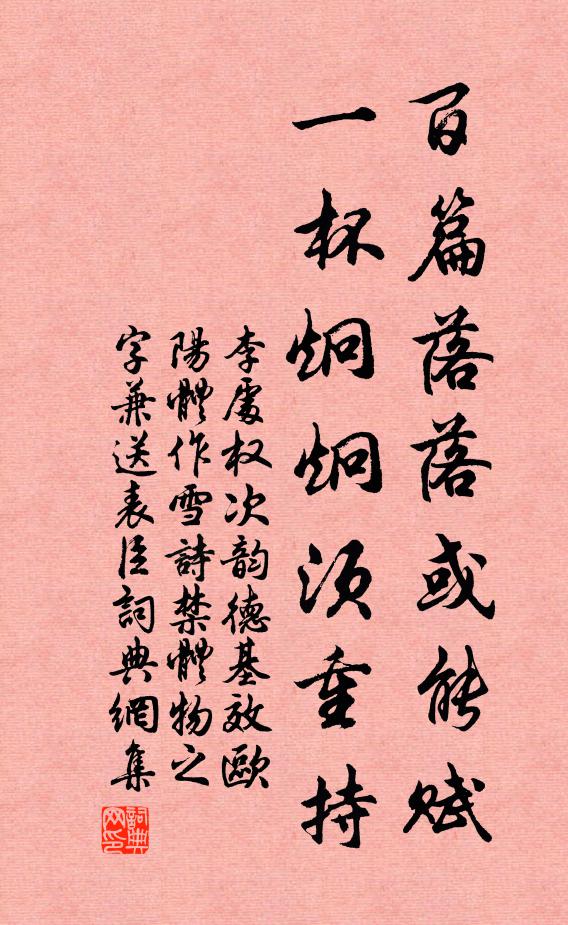 百篇落落或能赋
一杯炯炯须重持
李處权次韵德基效歐
陽體作雪詩禁體物之
字兼送表臣詞典網集
詞典网印